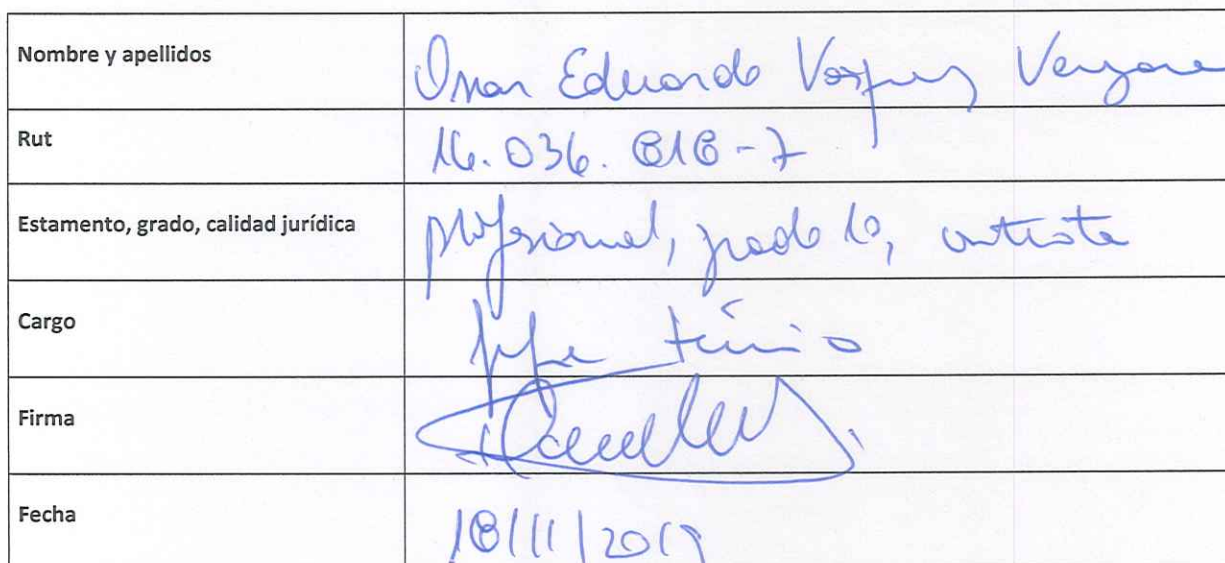 Nombre y apellidos
Omar Eduardo Vásquez Vergara
Rut
16.036.818-7
Estamento, grado, calidad jurídica
profesional, grado 10, contrata
Cargo
jefe técnico
Firma
Fecha
18/11/2019